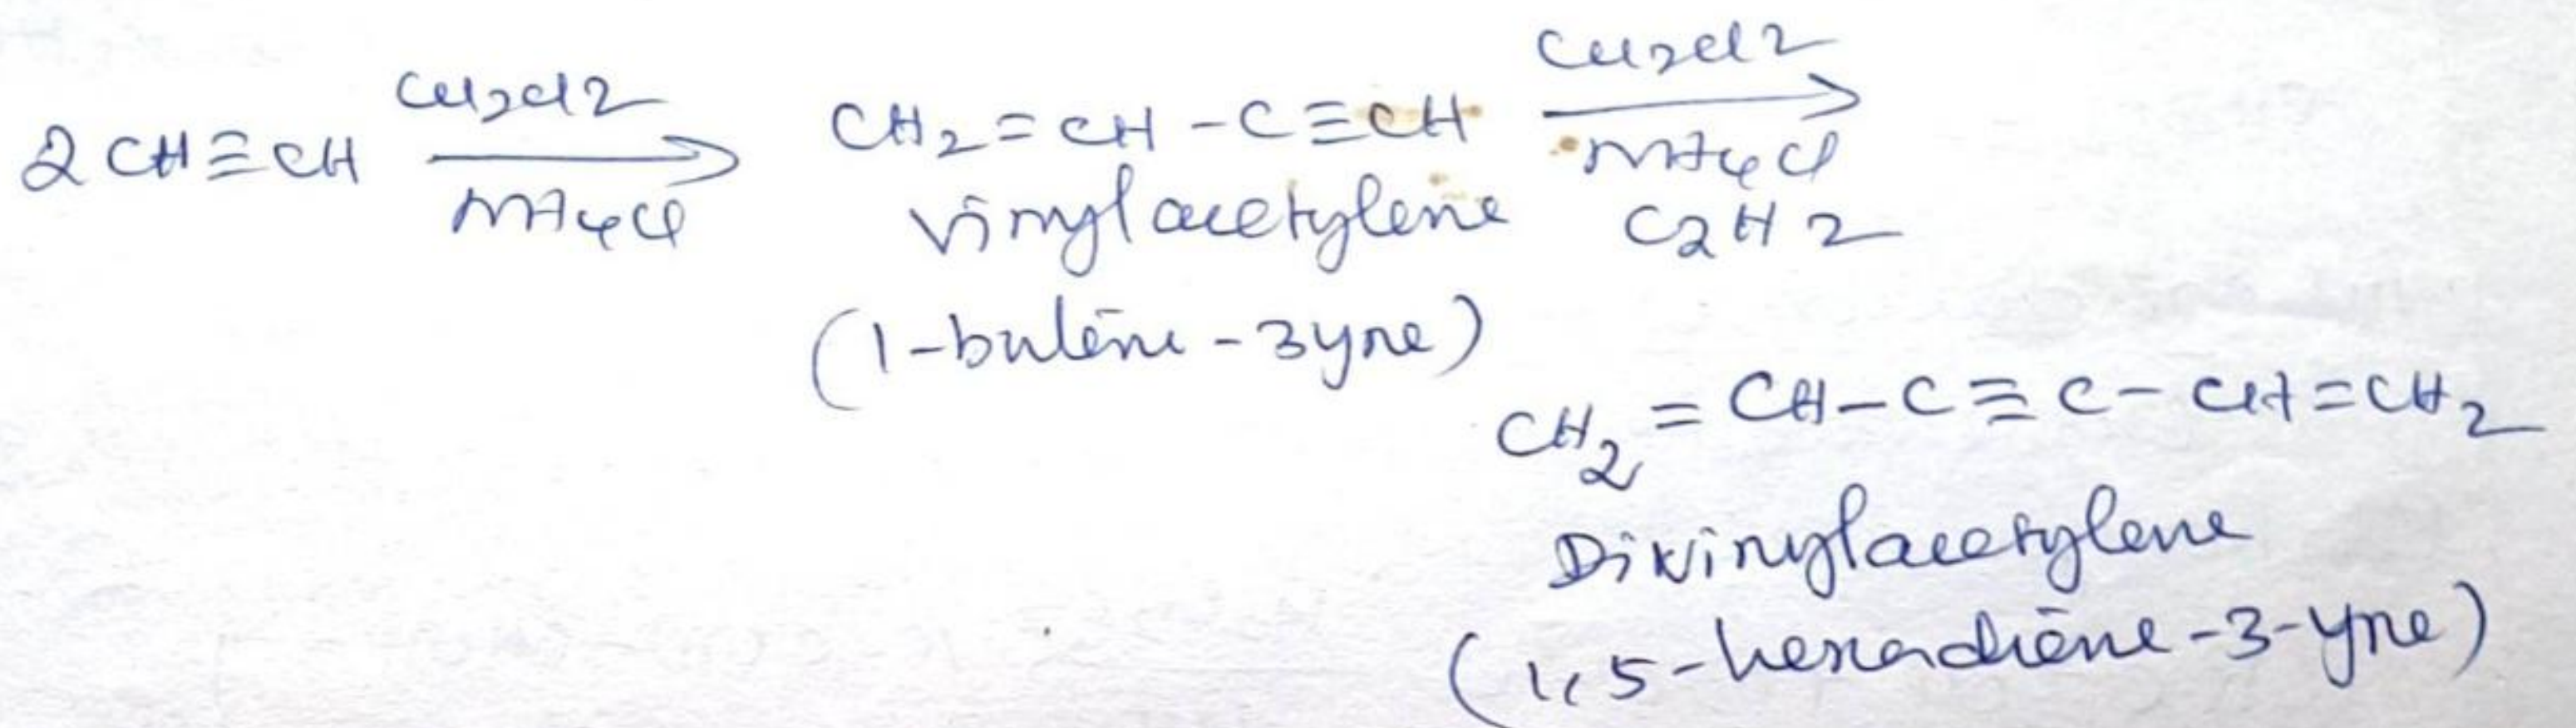 2 CH≡CH Cu2Cl2 NH4Cl CH2=CH-C≡CH Cu2Cl2 NH4Cl C2H2
vinylacetylene
(1-butene-3yne)
CH2=CH-C≡C-CH=CH2
Divinylacetylene
(1,5-hexadiene-3-yne)